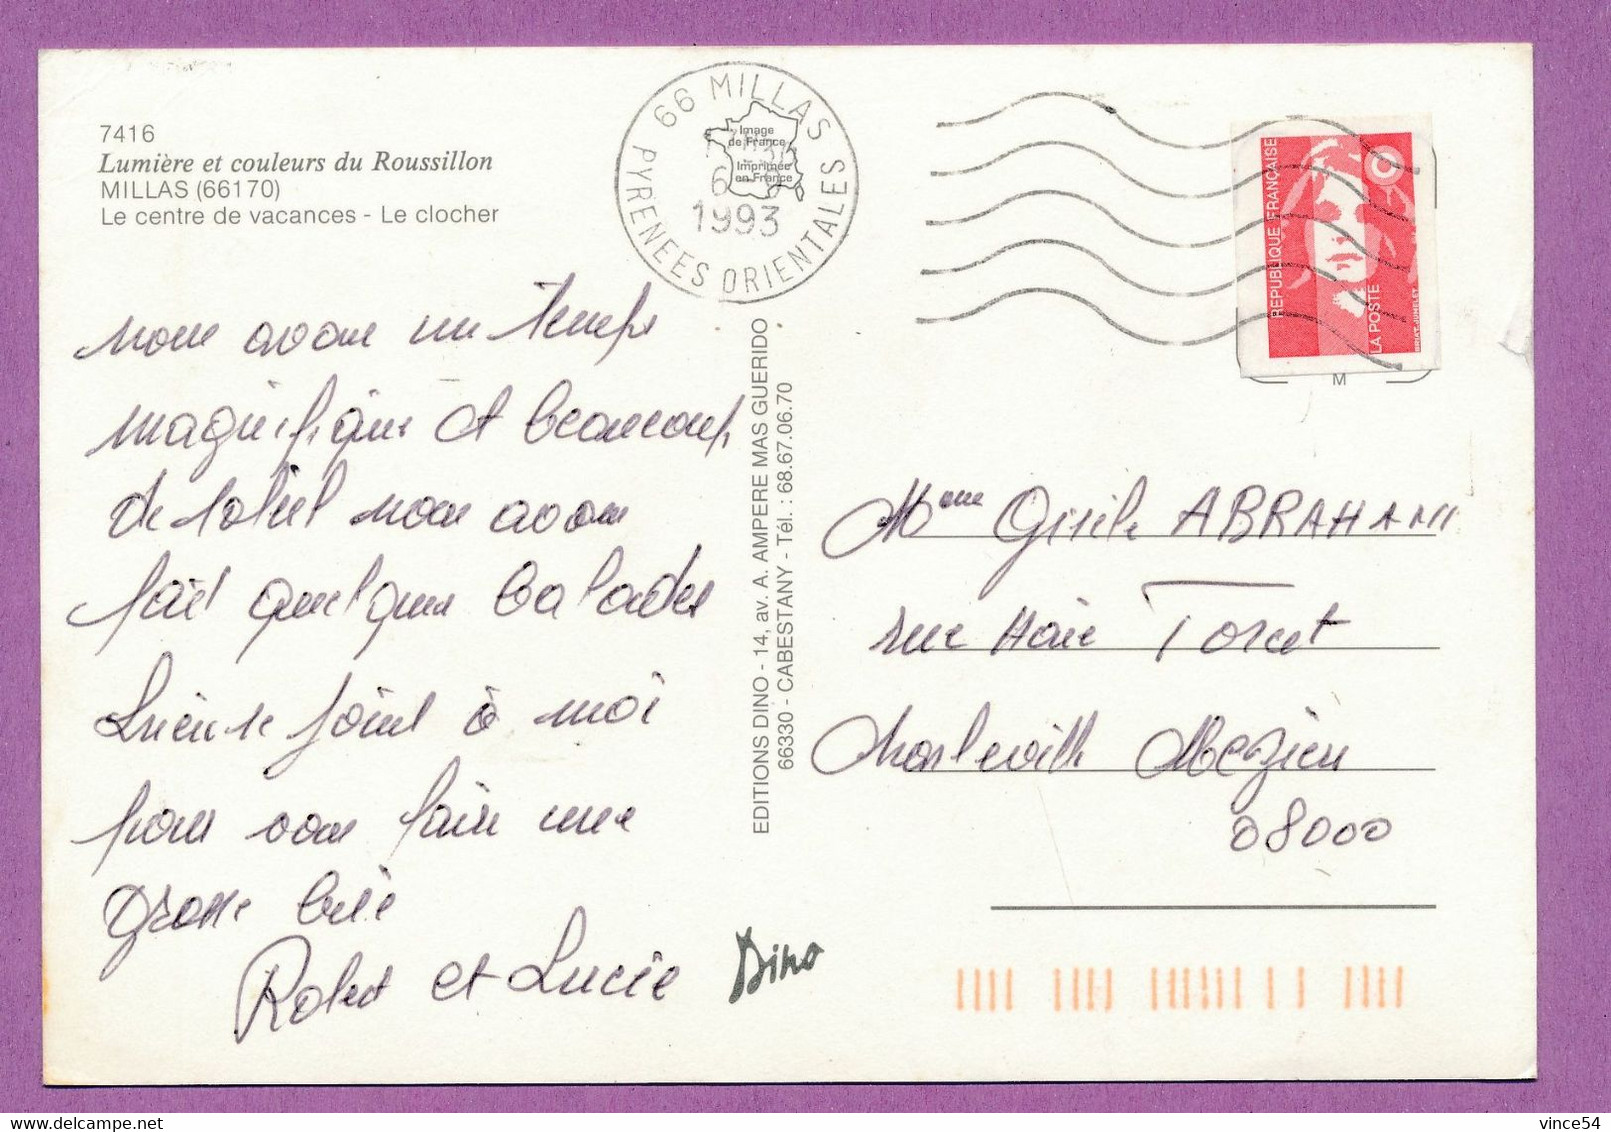 7416
Lumière et couleurs du Roussillon
MILLAS (66170)
Le centre de vacances - Le clocher
66 MILLAS
PYRENEES ORIENTALES
1993
Image
de France
Imprimée
en France
REPUBLIQUE FRANÇAISE
LA POSTE
BRIAT-JUMELET
M
nous avons un temps
magnifique et beaucoup
de soleil nous avons
fait quelques balades
Lucienne joint à moi
pour vous faire une
grosse bisé
Robert et Lucie
EDITIONS DINO - 14, av. A. AMPERE MAS GUERIDO
66330 - CABESTANY - Tél. : 68.67.06.70
Dino
Mme Gisèle ABRAHAM
rue Haie Torcet
Charleville Mezieres
08000
delcampe.net
vince54